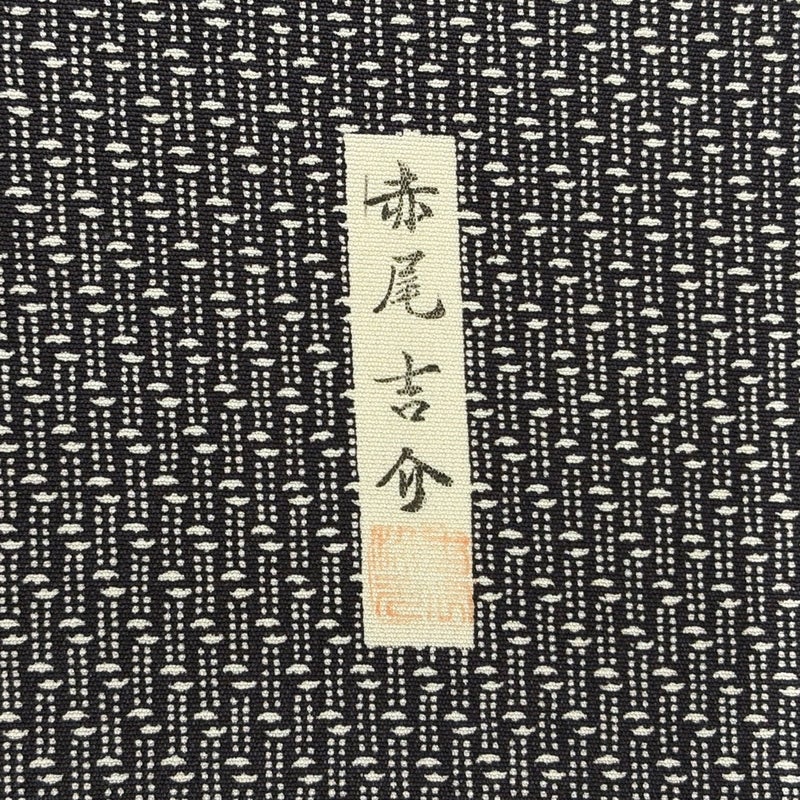 赤尾吉介